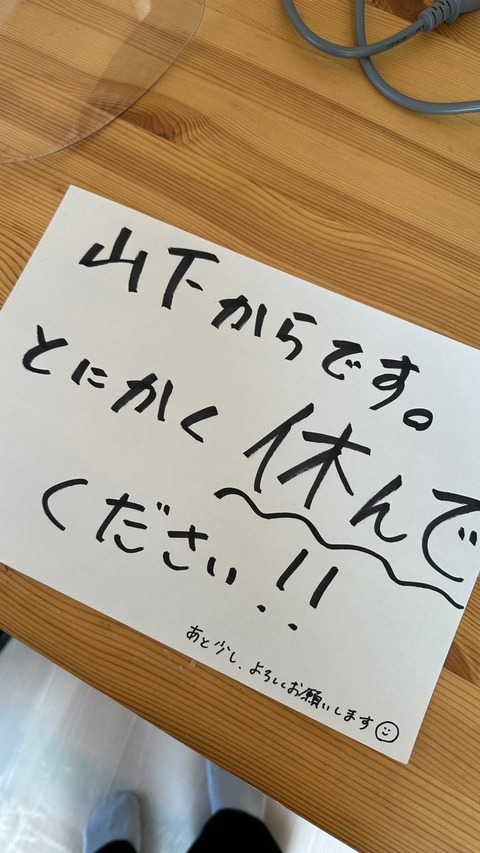 山下からです。
とにかく休んで
ください!!
あと少し、よろしくお願いします☺